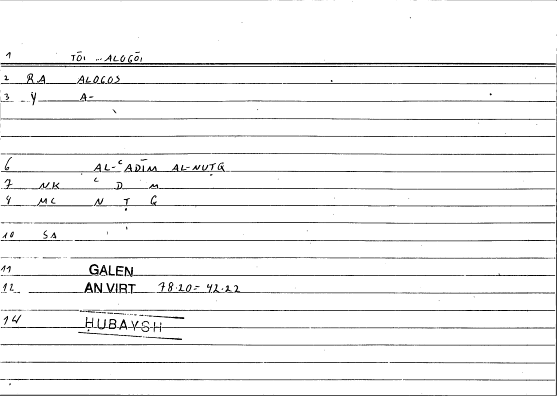 1 TŌI ... ALOGŌI
2 RA ALOGOS
3 Y A-
6 AL-ʿADĪM AL-NUṬQ
7 NK ʿ D M
4 MC N Ṭ Q
10 SA
11 GALEN
12 AN VIRT 78.20 = 42.22
14 ḤUBAYSH